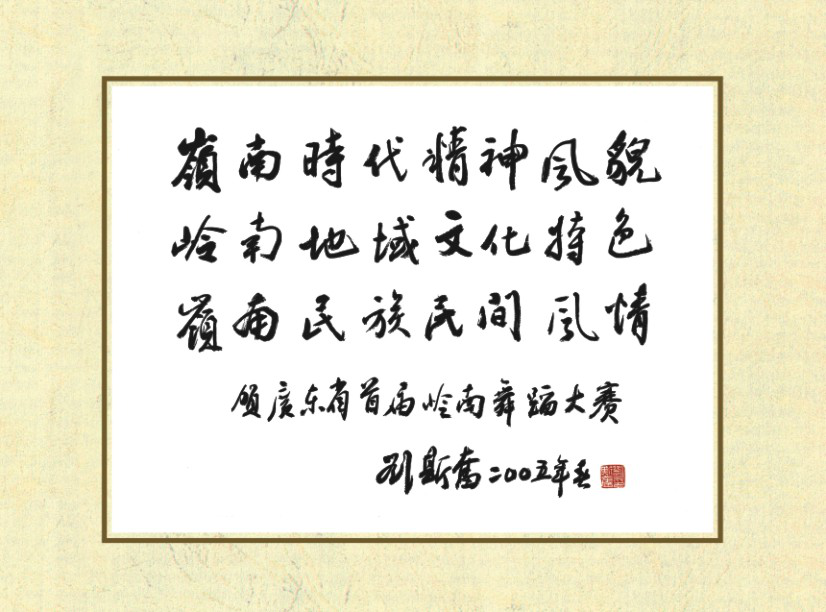 嶺南時代精神风貌
岭南地域文化特色
嶺南民族民间风情
颂廣东省首届岭南舞蹈大赛
刘斯奮二00五年春